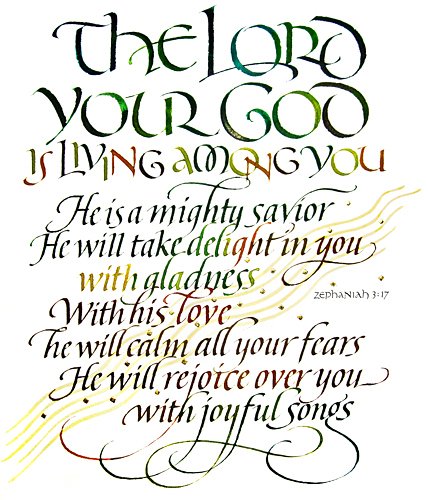 The Lord
your God
is living among you
He is a mighty savior
He will take delight in you
with gladness
Zephaniah 3:17
With his love
he will calm all your fears
He will rejoice over you
with joyful songs